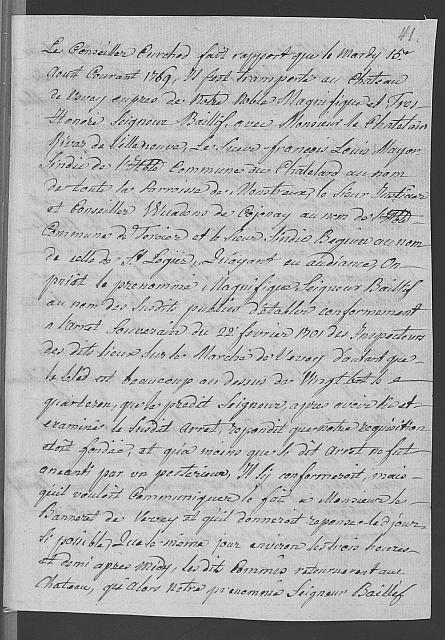 41.
Le Conseiller Curchod fait rapport que le Mardy 15e
Aout Courant 1769, Il s'est transporté au Chateau
de Vevey aupres de Notre Noble Magnifique et Tres
Honoré Seigneur Baillif, avec Monsieur le Chatelain
Rivaz de Villeneuve, Le Sieur françois Louis Mayor
Sindic de Commune du Chatelard au nom
de toute la Parroisse de Montreux, le Sieur Justicier
et Conseiller de au nom de
Commune de et le Sieur Sindic au nom
de celle de St Legier, Qu'ayant eu audiance, On
priat le prenommé Magnifique Seigneur Baillif
au nom des susdits publics d'établir conformement
a l'arret Souverain du 22e fevrier 1701 des Inspecteurs
des dits lieux sur le Marché de Vevey d'autant que
le bled est beaucoup au dessus de Vingt bats le
quarteron, que le predit Seigneur, apres avoir lû et
examiné le Susdit Arret, repondit que notre requisition
étoit fondée, et qu'a moins que le dit Arret ne fut
aneanti par un posterieur, Il s'y conformeroit, mais
qu'il vouloit Communiquer le fait a Monsieur le
Banneret de Vevey et qu'il donneroit reponse le jour
si possible, Que le meme jour environ les trois heures
et demi apres midy, les dits Commis retournerent au
Chateau, que Alors notre prenommé Seigneur Baillif